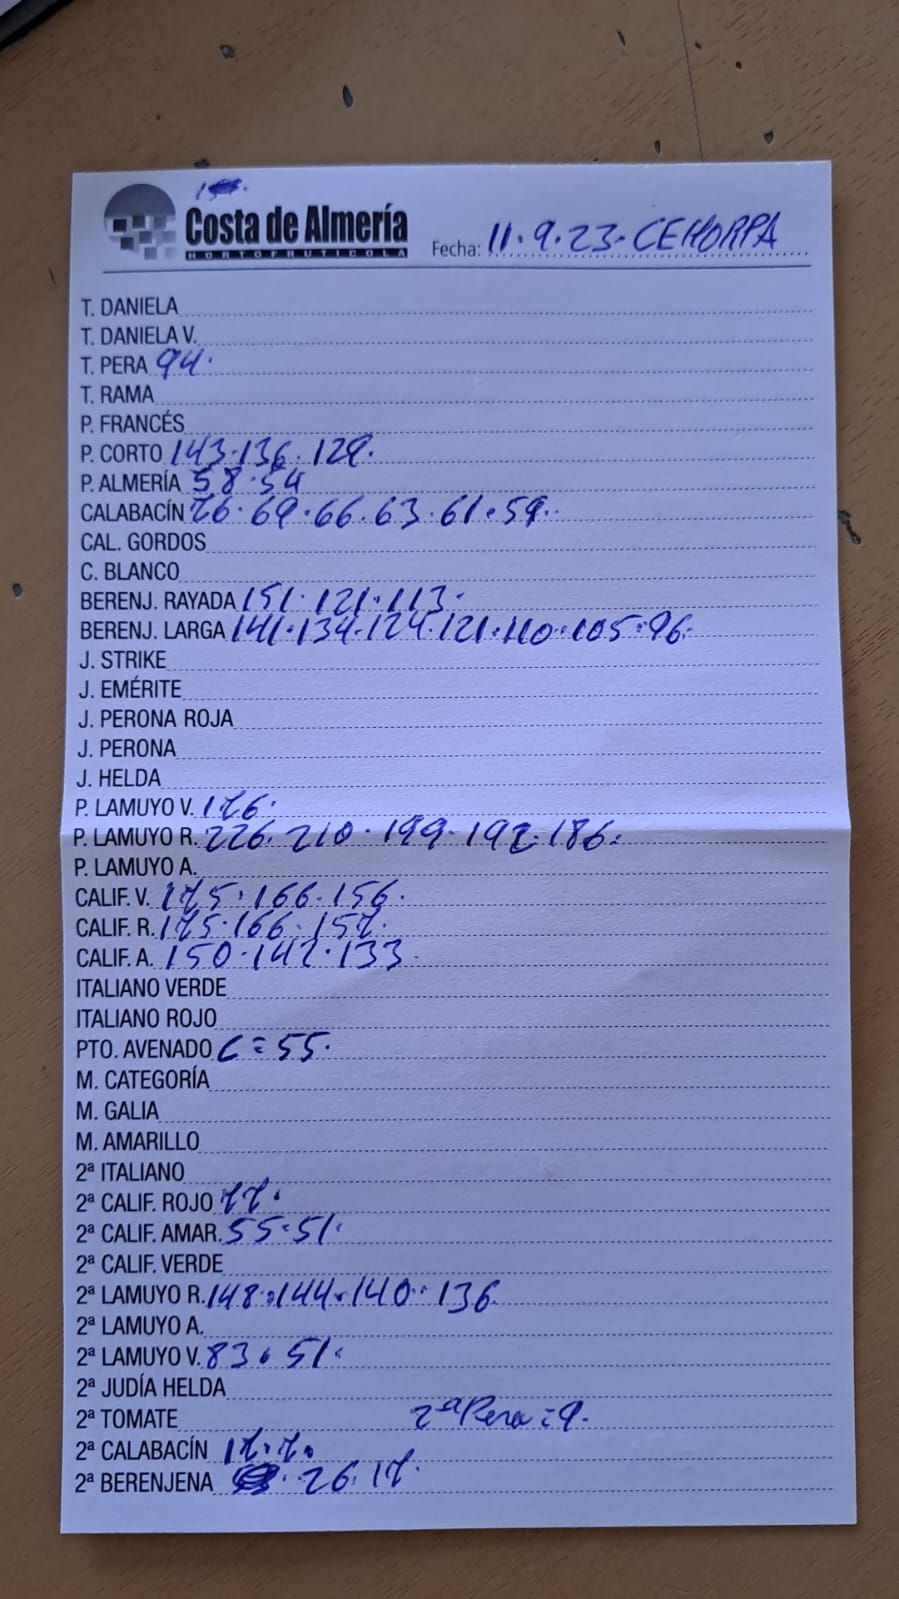 Costa de Almería
HORTOFRUTICOLA
Fecha: 11.9.23. CEHORPA
T. DANIELA
T. DANIELA V.
T. PERA 94.
T. RAMA
P. FRANCÉS
P. CORTO 143.136.129.
P. ALMERÍA 58.54
CALABACÍN 76.69.66.63.61.59.
CAL. GORDOS
C. BLANCO
BERENJ. RAYADA 151.121.113.
BERENJ. LARGA 141.134.124.121.110.105.96.
J. STRIKE
J. EMÉRITE
J. PERONA ROJA
J. PERONA
J. HELDA
P. LAMUYO V. 176.
P. LAMUYO R. 226.210.199.192.186.
P. LAMUYO A.
CALIF. V. 175.166.156.
CALIF. R. 175.166.157.
CALIF. A. 150.142.133.
ITALIANO VERDE
ITALIANO ROJO
PTO. AVENADO C=55.
M. CATEGORÍA
M. GALIA
M. AMARILLO
2ª ITALIANO
2ª CALIF. ROJO 77.
2ª CALIF. AMAR. 55.51.
2ª CALIF. VERDE
2ª LAMUYO R. 148.144.140.136.
2ª LAMUYO A.
2ª LAMUYO V. 83.51.
2ª JUDÍA HELDA
2ª TOMATE 2ª Pera=9.
2ª CALABACÍN 17.7.
2ª BERENJENA 26.17.